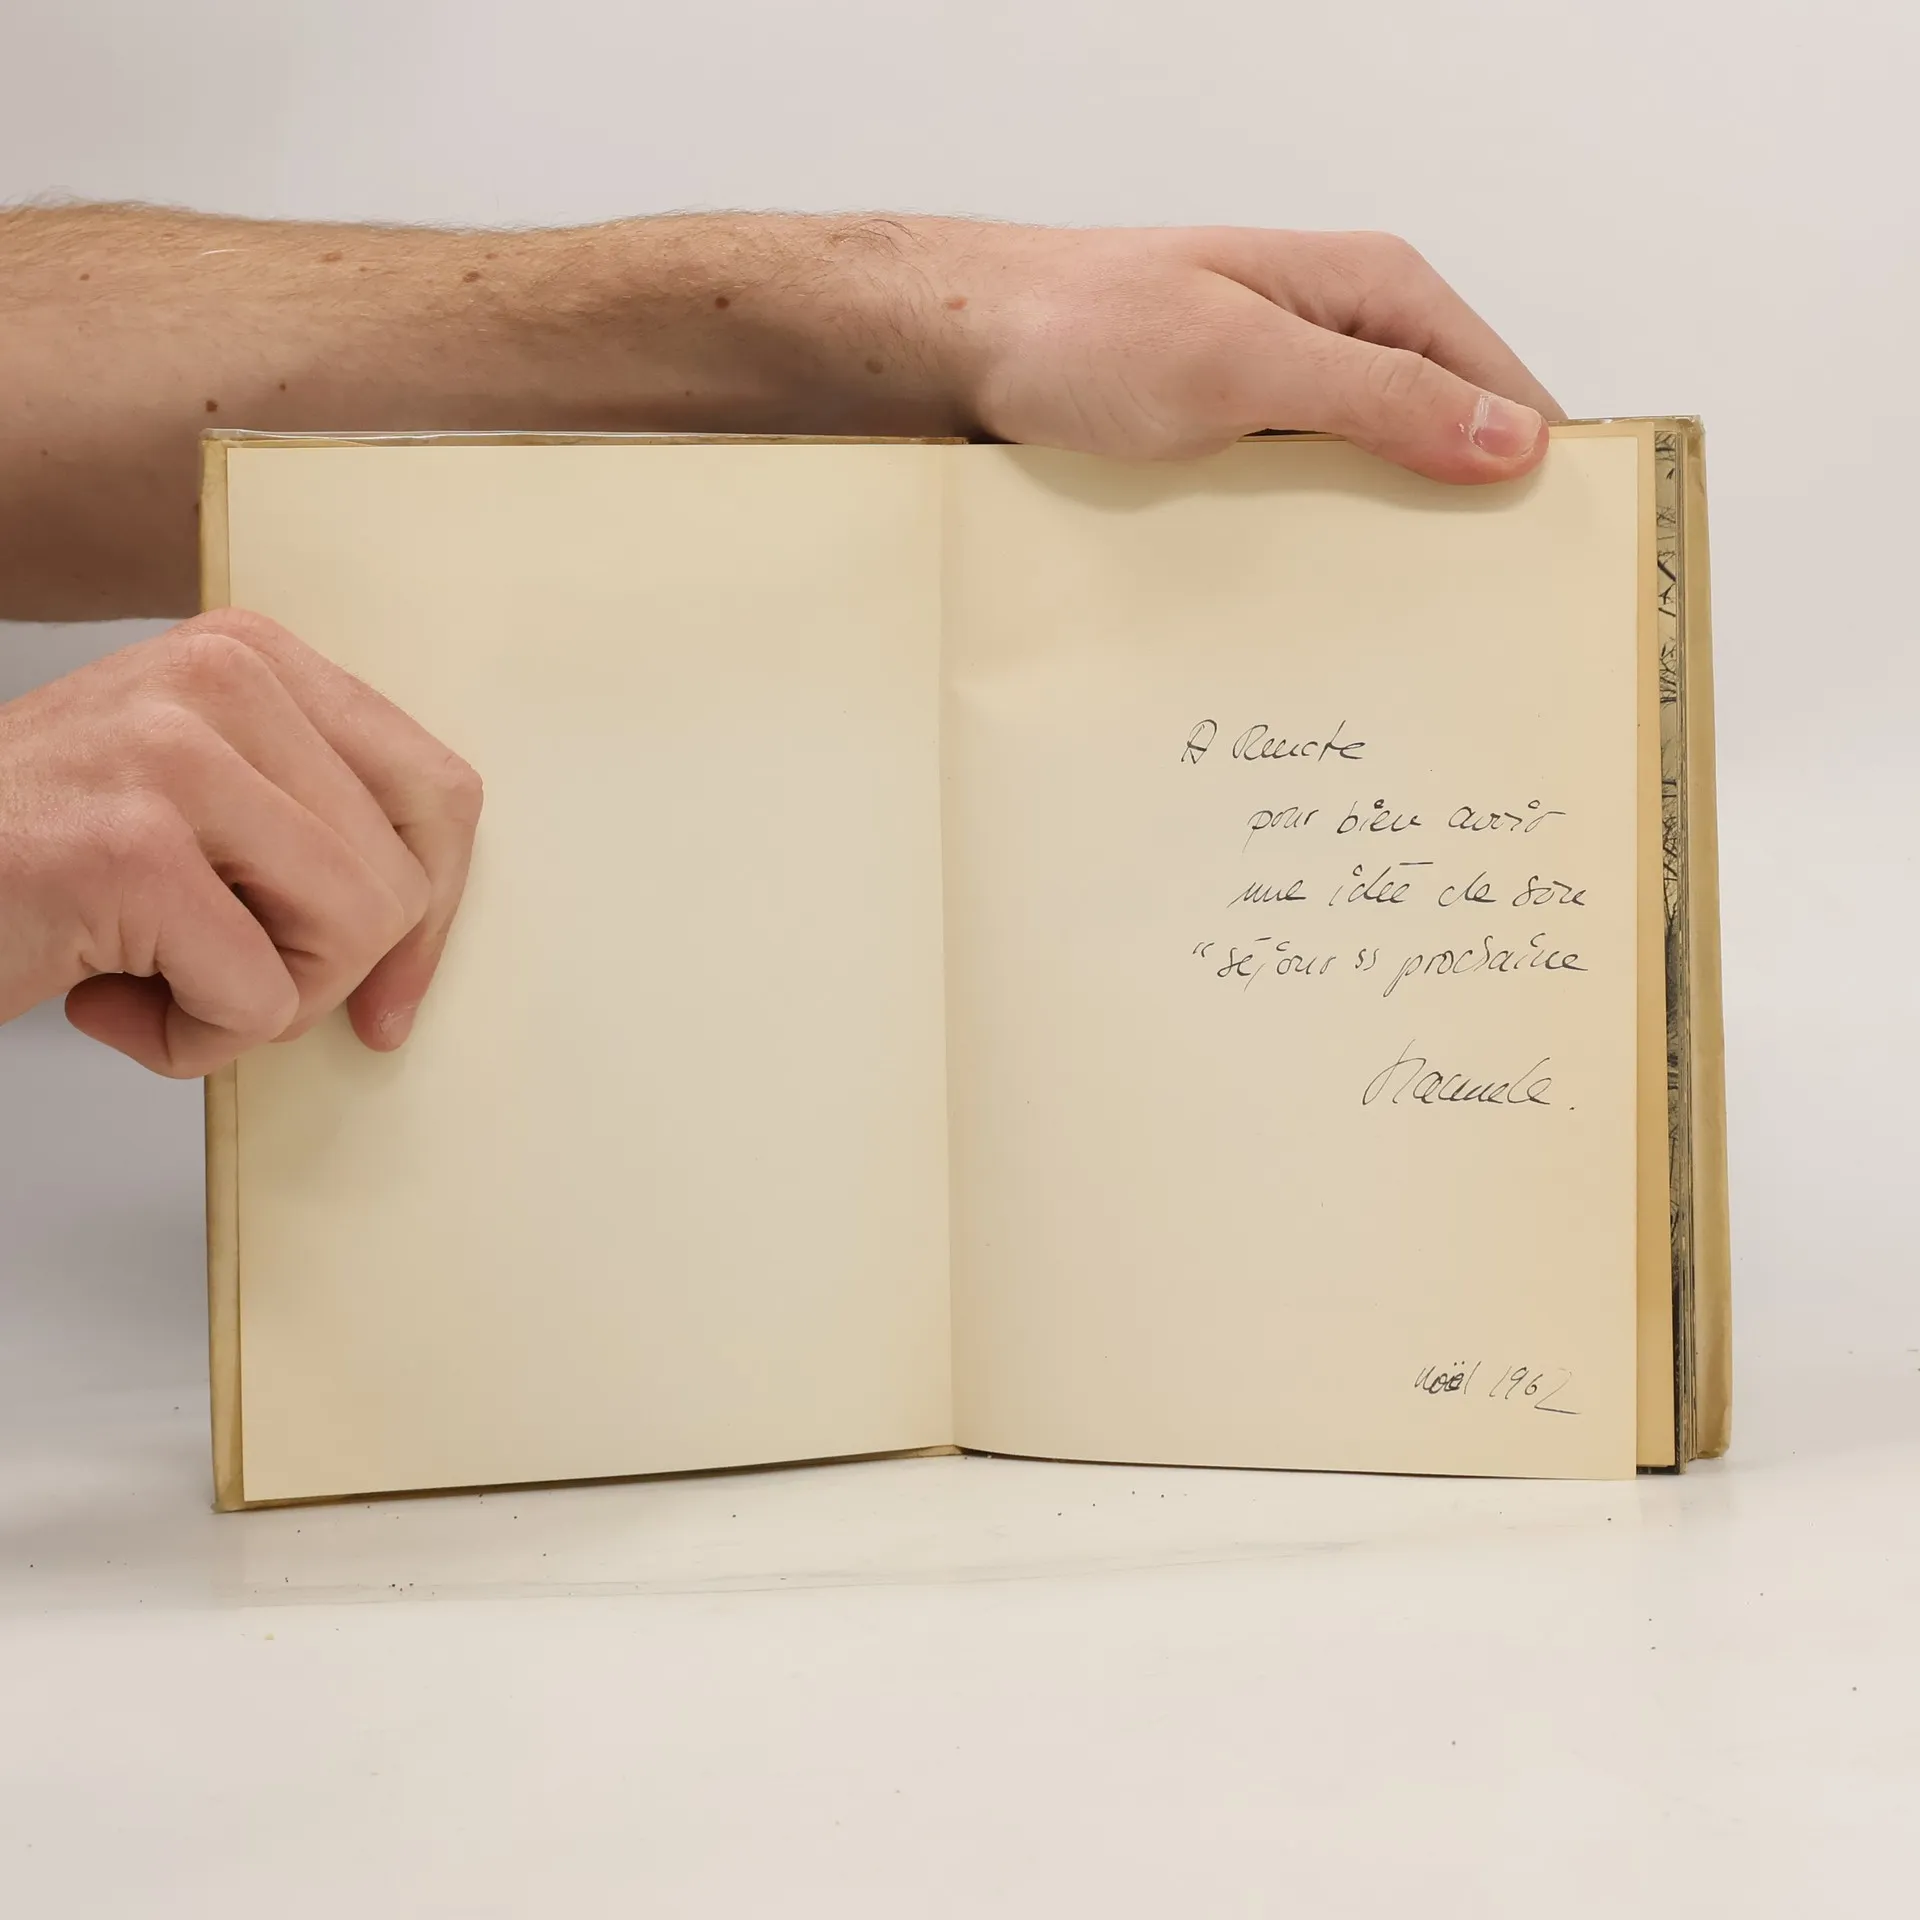 A Renate
pour bien avoir
une idée de son
"séjour" prochaine
noël 1962